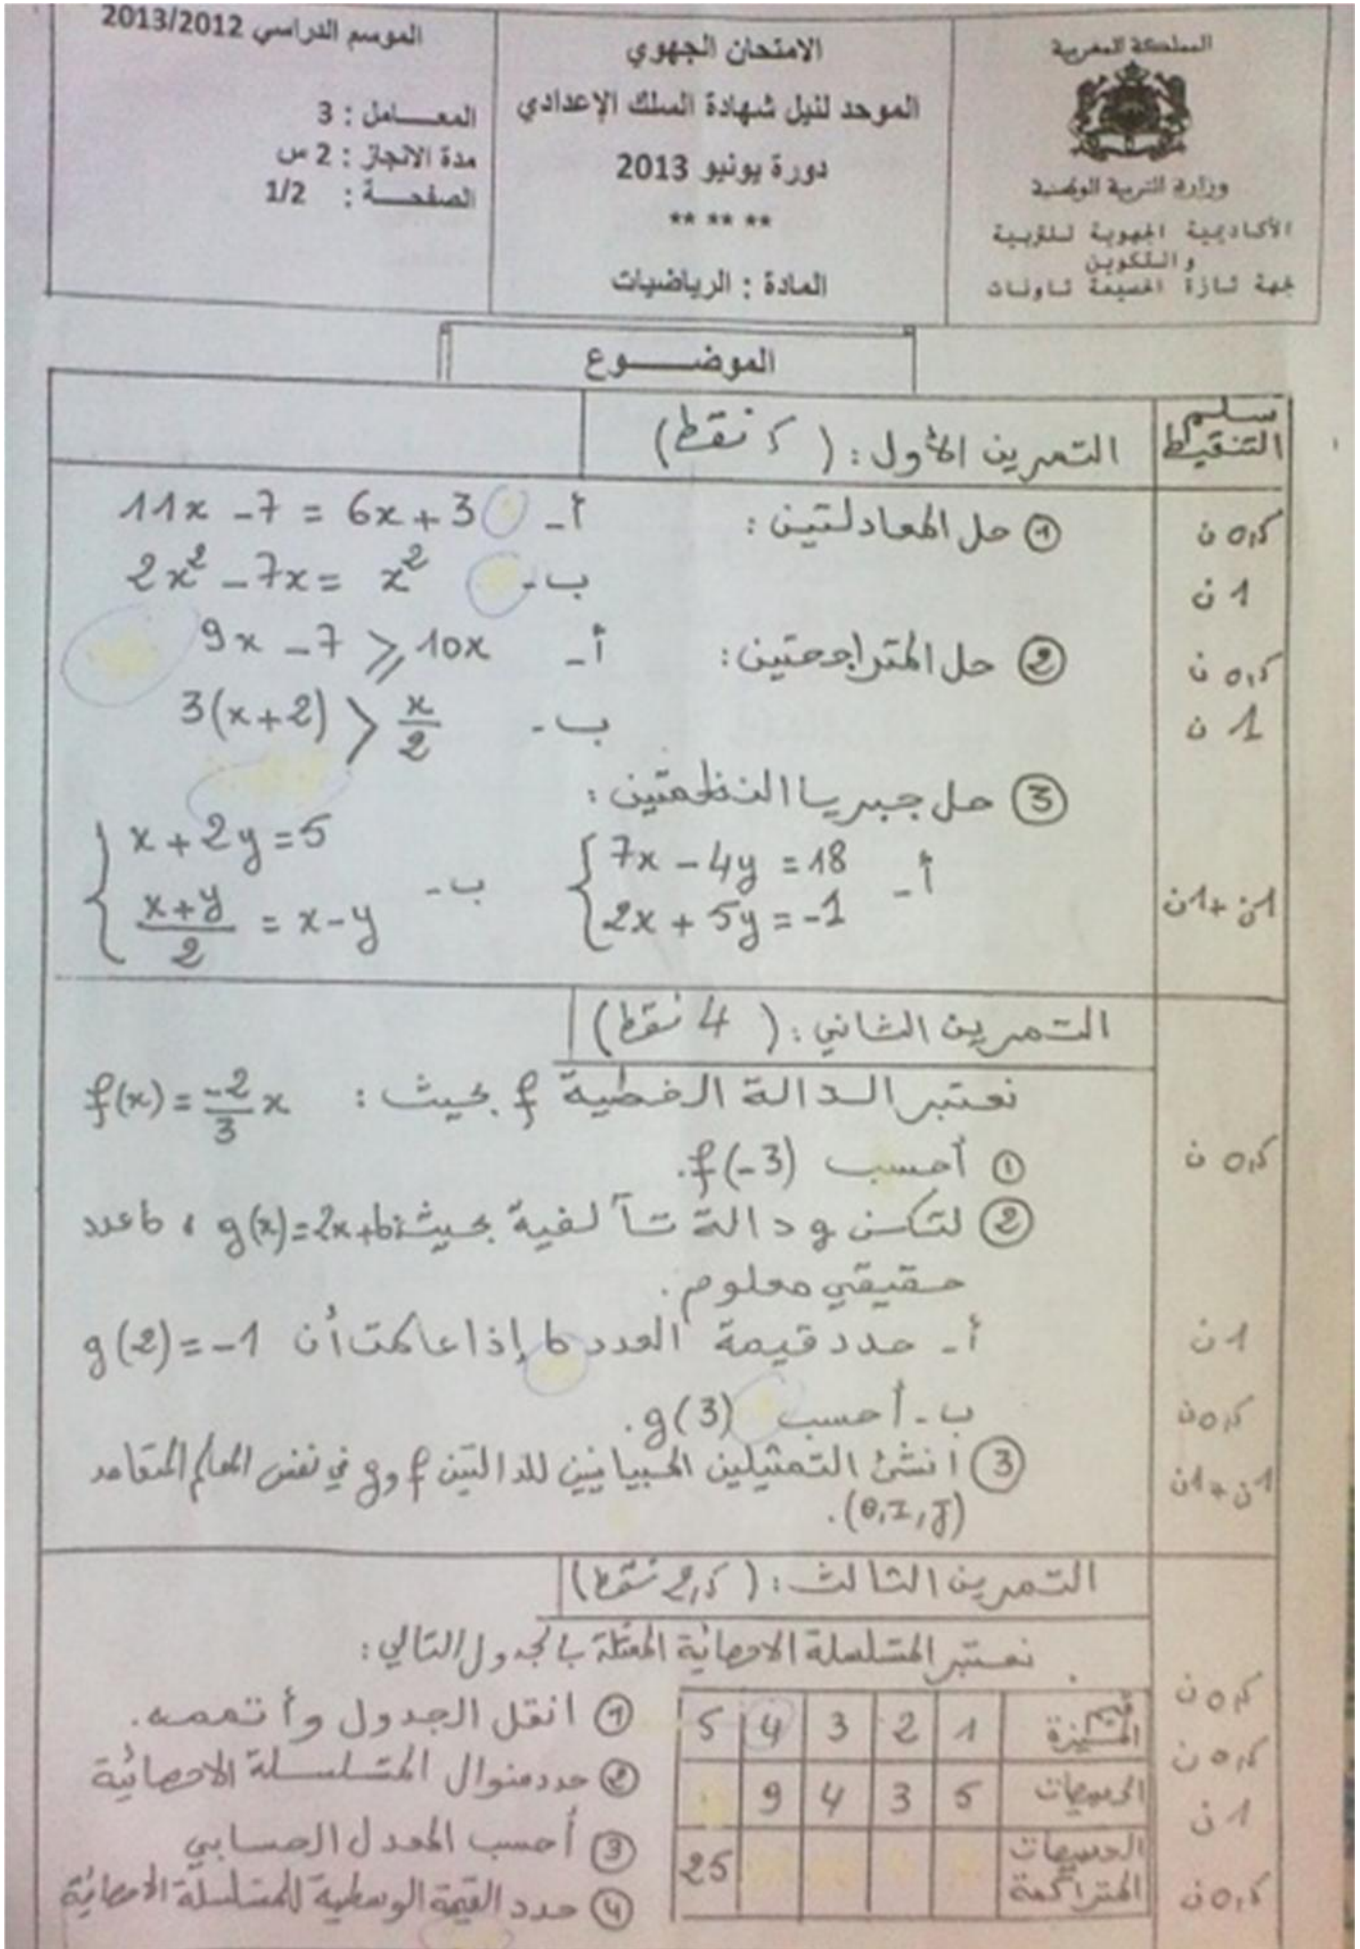 المملكة المغربية
وزارة التربية الوطنية
الأكاديمية الجهوية للتربية
والتكوين
لجهة تازة الحسيمة تاونات
الامتحان الجهوي
الموحد لنيل شهادة السلك الإعدادي
دورة يونيو 2013
** ** **
المادة : الرياضيات
الموسم الدراسي 2013/2012
المعـــامل : 3
مدة الانجاز : 2 س
الصفحـــة : 1/2
الموضـــوع
سلم التنقيط
التمرين الأول : ( 5 نقط )
① حل المعادلتين : أ- 11x - 7 = 6x + 3
0,5 ن
ب- 2x² - 7x = x²
1 ن
② حل المتراجحتين : أ- 9x - 7 ⩾ 10x
0,5 ن
ب- 3(x+2) > x/2
1 ن
③ حل جبريا النظمتين :
أ- { 7x - 4y = 18
2x + 5y = -1
ب- { x + 2y = 5
(x+y)/2 = x - y
1ن+1ن
التمرين الثاني : ( 4 نقط )
نعتبر الدالة الخطية f بحيث : f(x) = -2/3 x
① أحسب f(-3).
0,5 ن
② لتكن g دالة تآلفية بحيث: g(x)=2x+b ، b عدد
حقيقي معلوم.
أ- حدد قيمة العدد b إذا علمت أن g(2) = -1
1 ن
ب- أحسب g(3).
0,5 ن
③ أنشئ التمثيلين المبيانيين للدالتين f و g في نفس المعلم المتعامد
(O, I, J).
1ن+1ن
التمرين الثالث : ( 2,5 نقط )
نعتبر المتسلسلة الاحصائية الممثلة بالجدول التالي :
قيم الميزة 1 2 3 4 5
الحصيصات 5 3 4 9
الحصيصات المتراكمة 25
① انقل الجدول وأتممه.
0,5 ن
② حدد منوال المتسلسلة الاحصائية
0,5 ن
③ أحسب المعدل الحسابي
1 ن
④ حدد القيمة الوسطية للمتسلسلة الاحصائية
0,5 ن